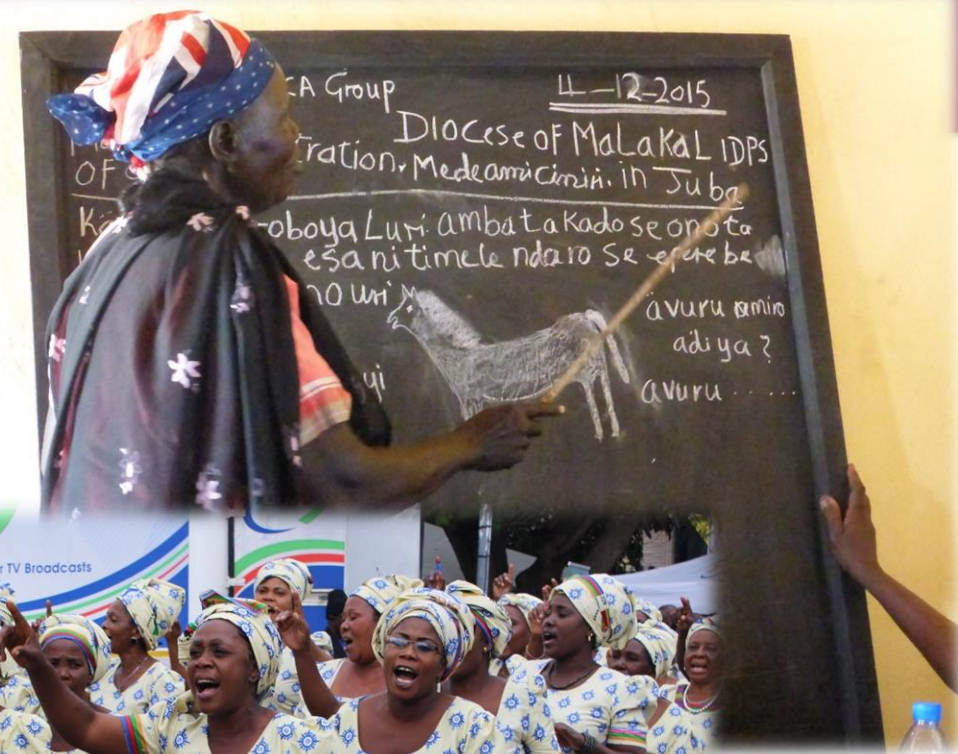 CA Group
4-12-2015
DIOCESE OF MALAKAL IDPS
tration. Medeamiciniri. in Juba
OF
oboya Luri ambatakado se onota
esanitimele ndaro se epere be
no uri
ävuru ramiro
adiya?
yi
avuru ......
r TV Broadcasts